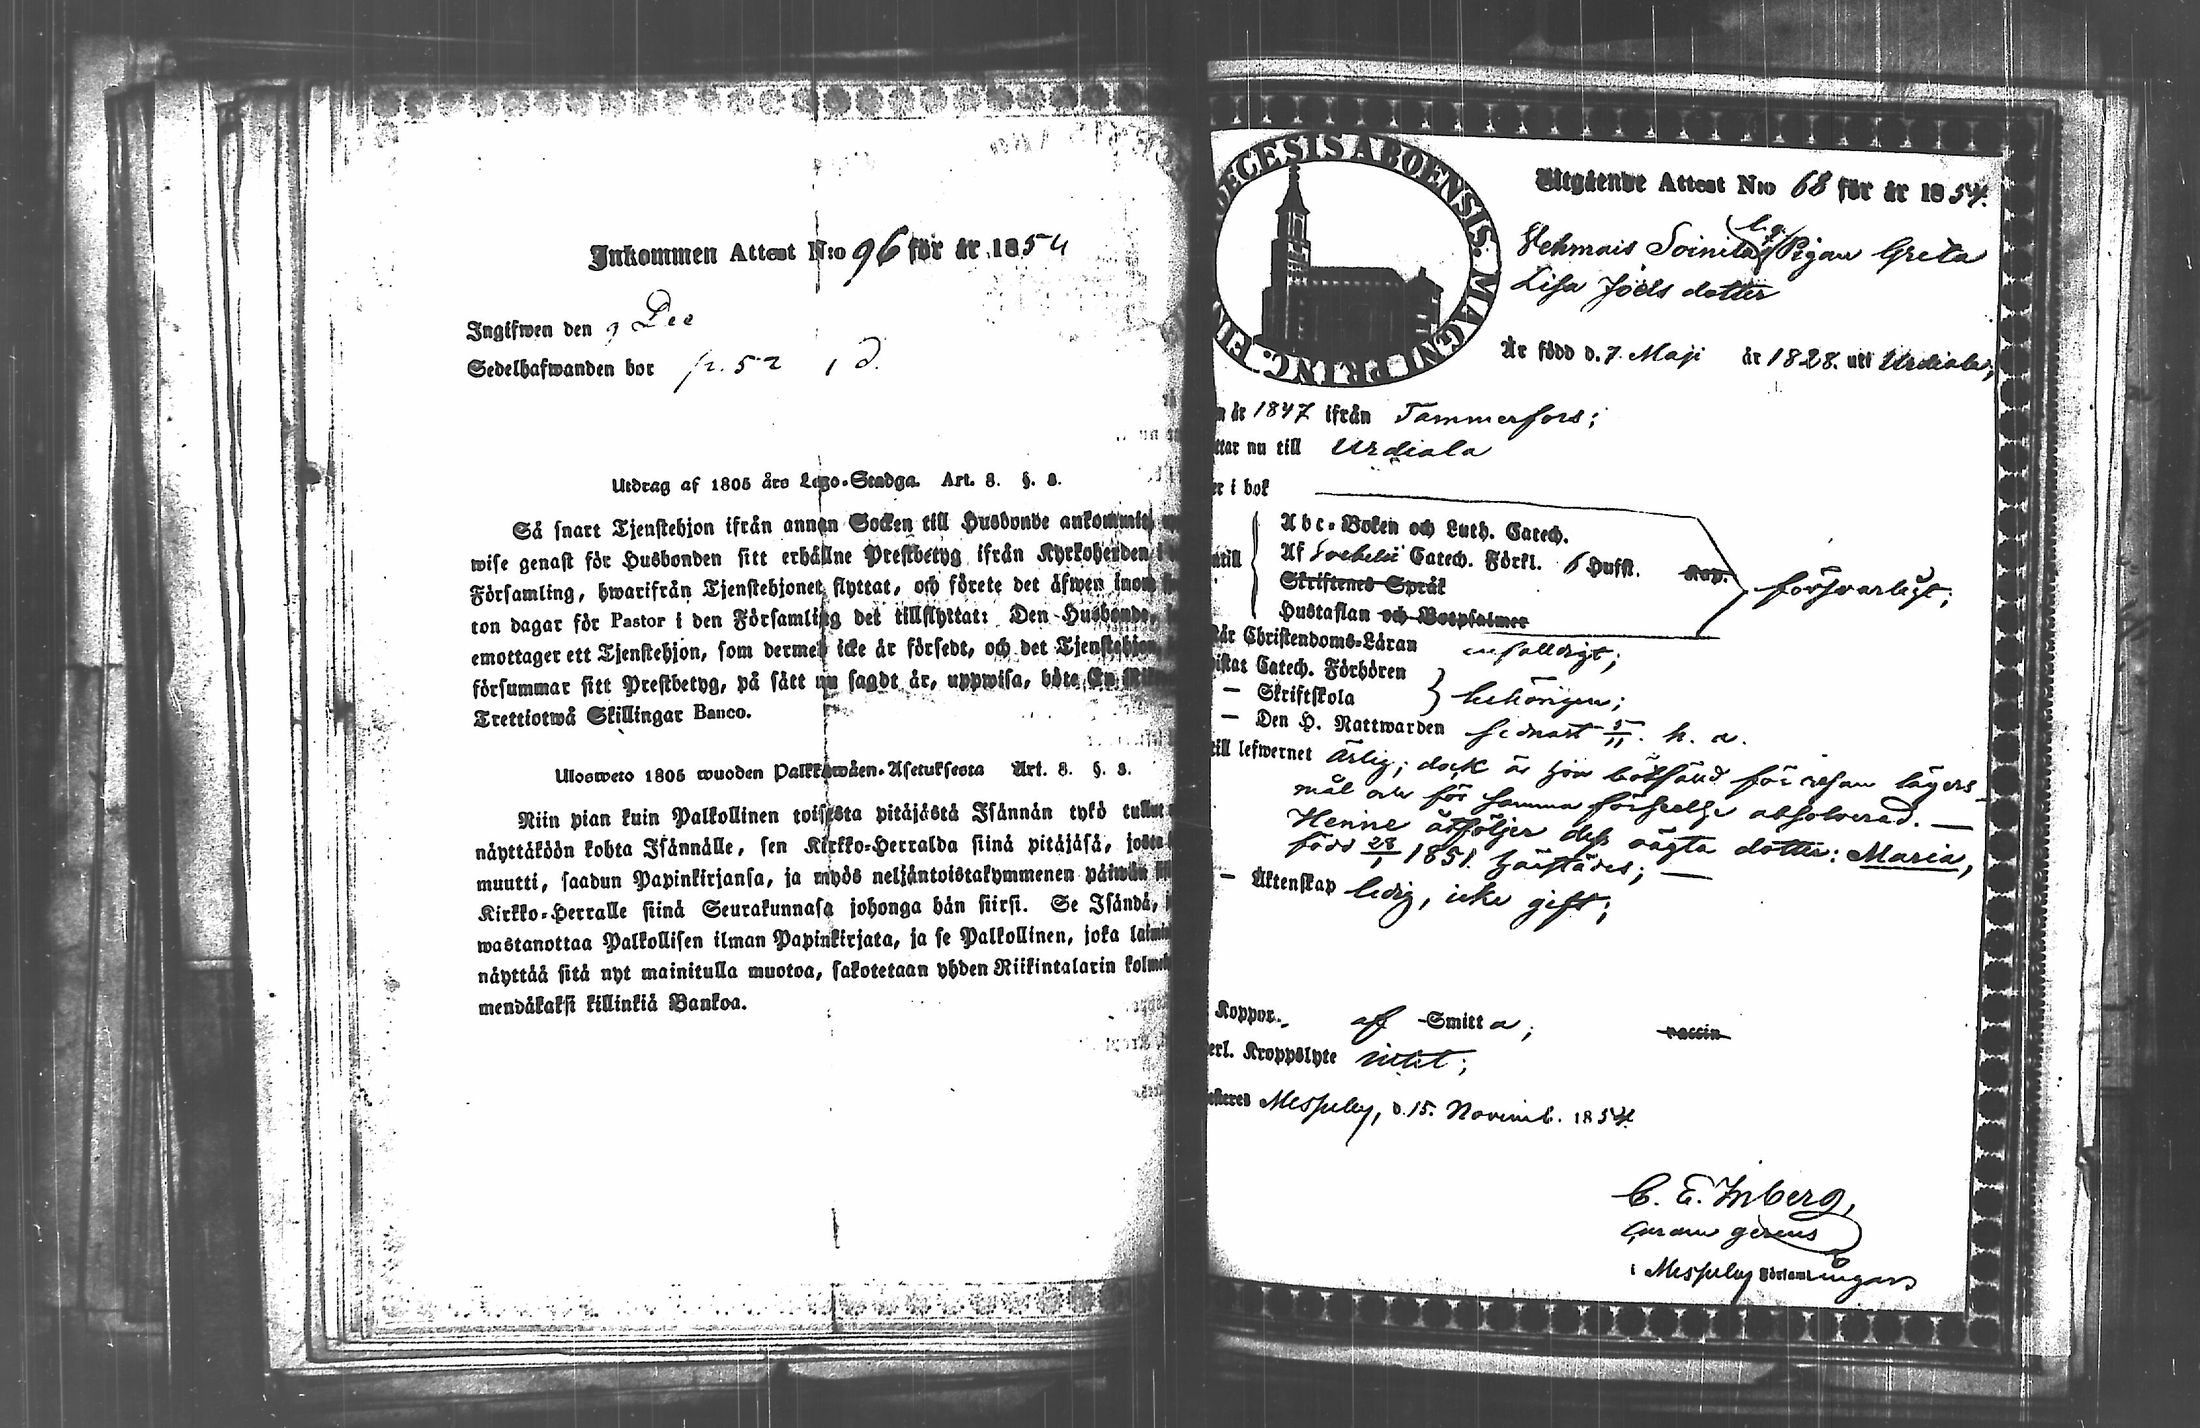 Inkommen Attest N:o 96 för år 1854
Ingifwen den 9 Dec
Sedelhafwanden bor p. 52
Utdrag af 1805 års Lego-Stadga. Art. 8. §. 3.
Så snart Tjenstehjon ifrån annan Socken till Husbonde ankommit,
wise genast för Husbonden sitt erhållne Prestbetyg ifrån Kyrkoherden i
Församling, hwarifrån Tjenstehjonet flyttat, och förete det äfwen inom
ton dagar för Pastor i den Församling det tillflyttat: Den Husbonde,
emottager ett Tjenstehjon, som dermed icke är försedt, och det Tjenstehjon,
försummar sitt Prestbetyg, på sätt nu sagdt är, uppwisa, böte En
Trettiotwå Skillingar Banco.
Ulosweto 1805 wuoden Palkkawäen-Asetuksesta Art. 8. §. 3.
Niin pian kuin Palkollinen toisesta pitäjästä Isännän tykö tullut
näyttäköön kohta Isännälle, sen Kirkko-Herralda siinä pitäjäsä, josta
muutti, saadun Papinkirjansa, ja myös neljäntoistakymmenen päiwän
Kirkko-Herralle siinä Seurakunnasa johonga hän siirsi. Se Isändä,
wastanottaa Palkollisen ilman Papinkirjata, ja se Palkollinen, joka
näyttää sitä nyt mainitulla muotoa, sakotetaan yhden Riikintalarin
mendäkaksi killinkiä Bankoa.
DIOECESIS ABOENSIS. MAGNI PRINC. FIN
Utgående Attest N:o 68 för år 1854.
Vehmais Soinila Pigan Greta
Lisa Joëls dotter
Är född d. 7. Maji år 1828. uti Urdiala;
n år 1847 ifrån Tammerfors;
ttar nu till Urdiala
er i bok
Abc-Boken och Luth. Catech.
ntill Af Svebelii Catech. Förkl. 6 Hufst. Kap. försvarligt;
Skriftenes Språk
Hustaflan och Botpsalmer
står Christendoms-Läran enfalldigt;
istat Catech. Förhören
— Skriftskola behörigen;
— Den H. Nattwarden sednast 5/11. h. a.
till lefwernet ärlig; dock är hon bötfäld för resan lägers-
mål och för samma förseelse absolverad. —
Henne åtföljer dess oägta dotter: Maria,
född 28/1 1851 härstädes; —
— Äktenskap ledig, icke gift;
Koppor. af Smitta; vaccin
erl. Kroppslyte intet;
esteres Messuby, d. 15. Novemb. 1854.
C. E. Inberg,
curam gerens
i Messuby Församlingar